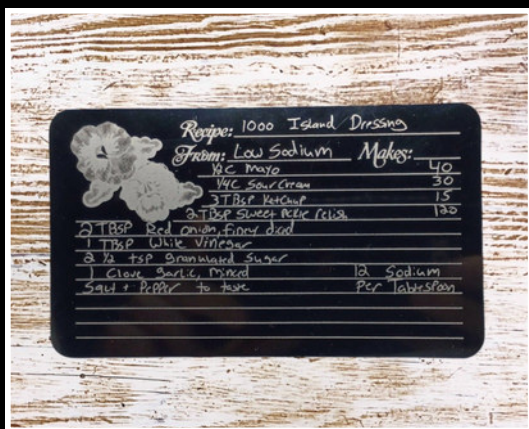 Recipe: 1000 Island Dressing
From: Low Sodium Makes:
1/2 C Mayo 40
1/4 C Sour Cream 30
3 TBSP Ketchup 15
2 TBSP Sweet Pickle relish 120
2 TBSP Red onion, finely diced
1 TBSP White Vinegar
2 1/2 tsp granulated Sugar
1 Clove garlic, Minced 12 Sodium
Salt + Pepper to taste Per Tablespoon